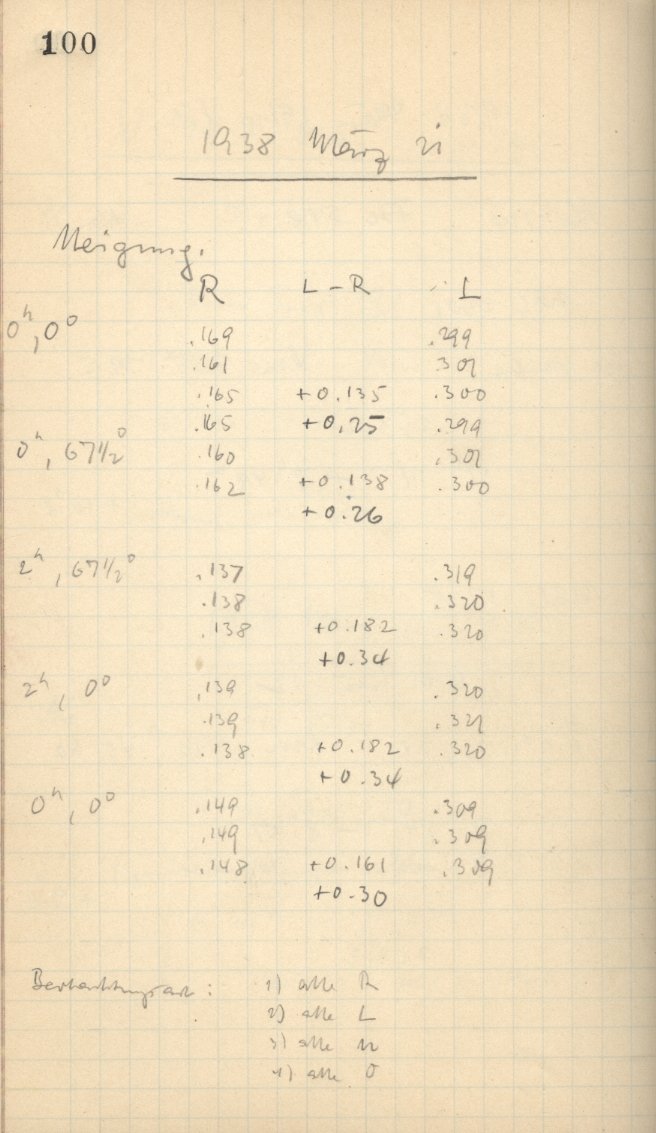 100
1938 März 21
Neigung.
R L-R L
0ʰ, 0° .169 .299
.161 .301
.165 +0.135 .300
.165 +0.25 .299
0ʰ, 67½° .160 .301
.162 +0.138 .300
+0.26
2ʰ, 67½° .137 .319
.138 .320
.138 +0.182 .320
+0.34
2ʰ, 0° .139 .320
.139 .321
.138 +0.182 .320
+0.34
0ʰ, 0° .149 .309
.149 .309
.148 +0.161 .309
+0.30
Beobachtungsart: 1) alle R
2) alle L
3) alle u
4) alle O